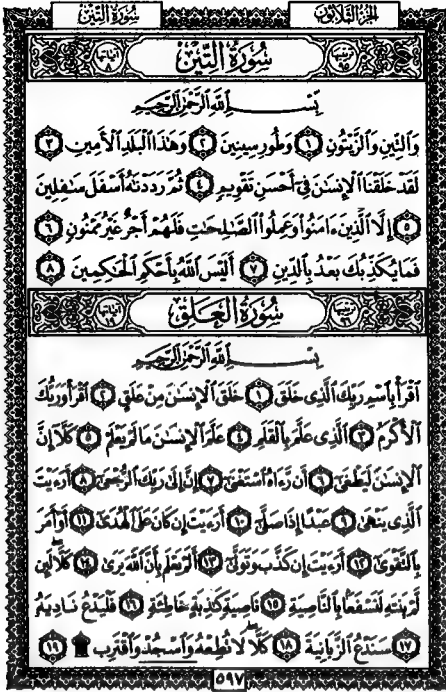 سُورَةُ التِّينِ
الجُزْءُ الثَّلَاثُونَ
آيَاتُهَا ٨
سُورَةُ التِّينِ
تَرْتِيبُهَا ٩٥
بِسْمِ اللَّهِ الرَّحْمَٰنِ الرَّحِيمِ
وَالتِّينِ وَالزَّيْتُونِ ١ وَطُورِ سِينِينَ ٢ وَهَٰذَا الْبَلَدِ الْأَمِينِ ٣
لَقَدْ خَلَقْنَا الْإِنسَٰنَ فِي أَحْسَنِ تَقْوِيمٍ ٤ ثُمَّ رَدَدْنَٰهُ أَسْفَلَ سَٰفِلِينَ
٥ إِلَّا الَّذِينَ ءَامَنُوا وَعَمِلُوا الصَّٰلِحَٰتِ فَلَهُمْ أَجْرٌ غَيْرُ مَمْنُونٍ ٦
فَمَا يُكَذِّبُكَ بَعْدُ بِالدِّينِ ٧ أَلَيْسَ اللَّهُ بِأَحْكَمِ الْحَٰكِمِينَ ٨
آيَاتُهَا ١٩
سُورَةُ الْعَلَقِ
تَرْتِيبُهَا ٩٦
بِسْمِ اللَّهِ الرَّحْمَٰنِ الرَّحِيمِ
اقْرَأْ بِاسْمِ رَبِّكَ الَّذِي خَلَقَ ١ خَلَقَ الْإِنسَٰنَ مِنْ عَلَقٍ ٢ اقْرَأْ وَرَبُّكَ
الْأَكْرَمُ ٣ الَّذِي عَلَّمَ بِالْقَلَمِ ٤ عَلَّمَ الْإِنسَٰنَ مَا لَمْ يَعْلَمْ ٥ كَلَّا إِنَّ
الْإِنسَٰنَ لَيَطْغَىٰ ٦ أَن رَّءَاهُ اسْتَغْنَىٰ ٧ إِنَّ إِلَىٰ رَبِّكَ الرُّجْعَىٰ ٨ أَرَءَيْتَ
الَّذِي يَنْهَىٰ ٩ عَبْدًا إِذَا صَلَّىٰ ١٠ أَرَءَيْتَ إِن كَانَ عَلَى الْهُدَىٰ ١١ أَوْ أَمَرَ
بِالتَّقْوَىٰ ١٢ أَرَءَيْتَ إِن كَذَّبَ وَتَوَلَّىٰ ١٣ أَلَمْ يَعْلَم بِأَنَّ اللَّهَ يَرَىٰ ١٤ كَلَّا لَئِن
لَّمْ يَنتَهِ لَنَسْفَعًا بِالنَّاصِيَةِ ١٥ نَاصِيَةٍ كَٰذِبَةٍ خَاطِئَةٍ ١٦ فَلْيَدْعُ نَادِيَهُ
١٧ سَنَدْعُ الزَّبَانِيَةَ ١٨ كَلَّا لَا تُطِعْهُ وَاسْجُدْ وَاقْتَرِب ۩ ١٩
٥٩٧